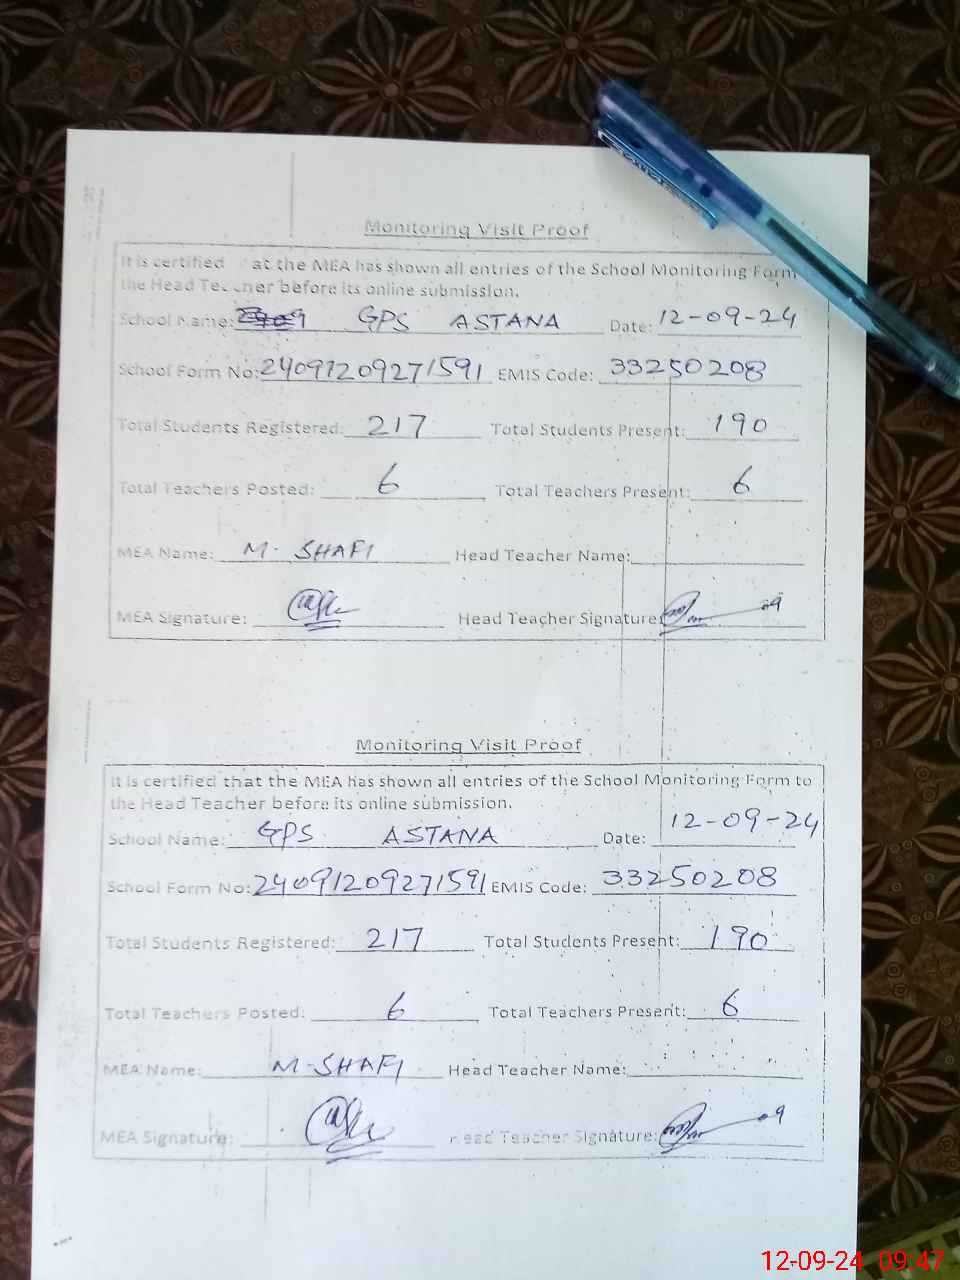 Monitoring Visit Proof
It is certified at the MEA has shown all entries of the School Monitoring Form to
the Head Teacher before its online submission.
School Name: GPS ASTANA Date: 12-09-24
School Form No: 24091209271591 EMIS Code: 33250208
Total Students Registered: 217 Total Students Present: 190
Total Teachers Posted: 6 Total Teachers Present: 6
MEA Name: M. SHAFI Head Teacher Name:
MEA Signature: Head Teacher Signature:
Monitoring Visit Proof
It is certified that the MEA has shown all entries of the School Monitoring Form to
the Head Teacher before its online submission.
School Name: GPS ASTANA Date: 12-09-24
School Form No: 24091209271591 EMIS Code: 33250208
Total Students Registered: 217 Total Students Present: 190
Total Teachers Posted: 6 Total Teachers Present: 6
MEA Name: M. SHAFI Head Teacher Name:
MEA Signature: Head Teacher Signature:
12-09-24 09:47